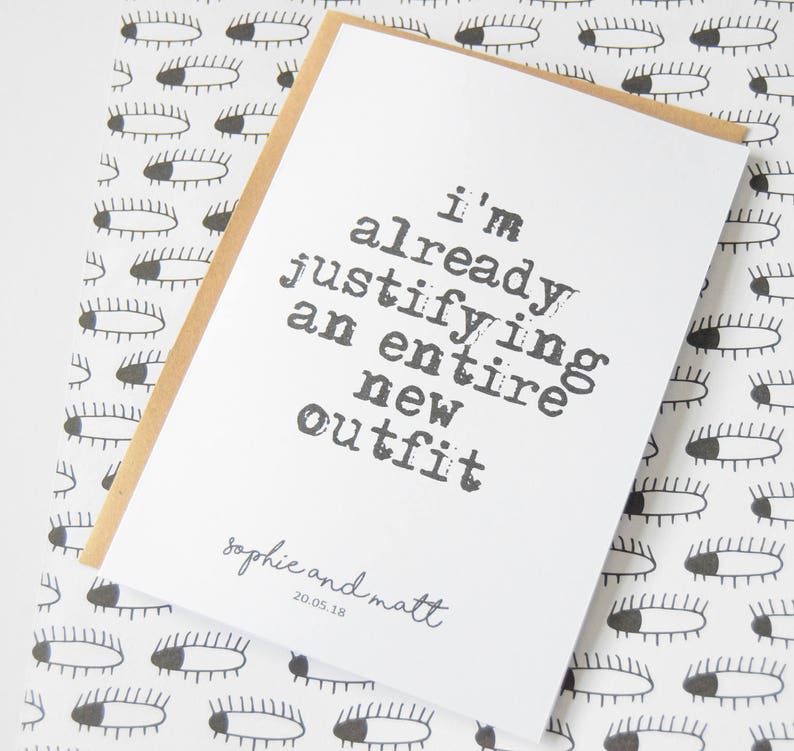 i'm
already
justifying
an entire
new
outfit
sophie and matt
20.05.18